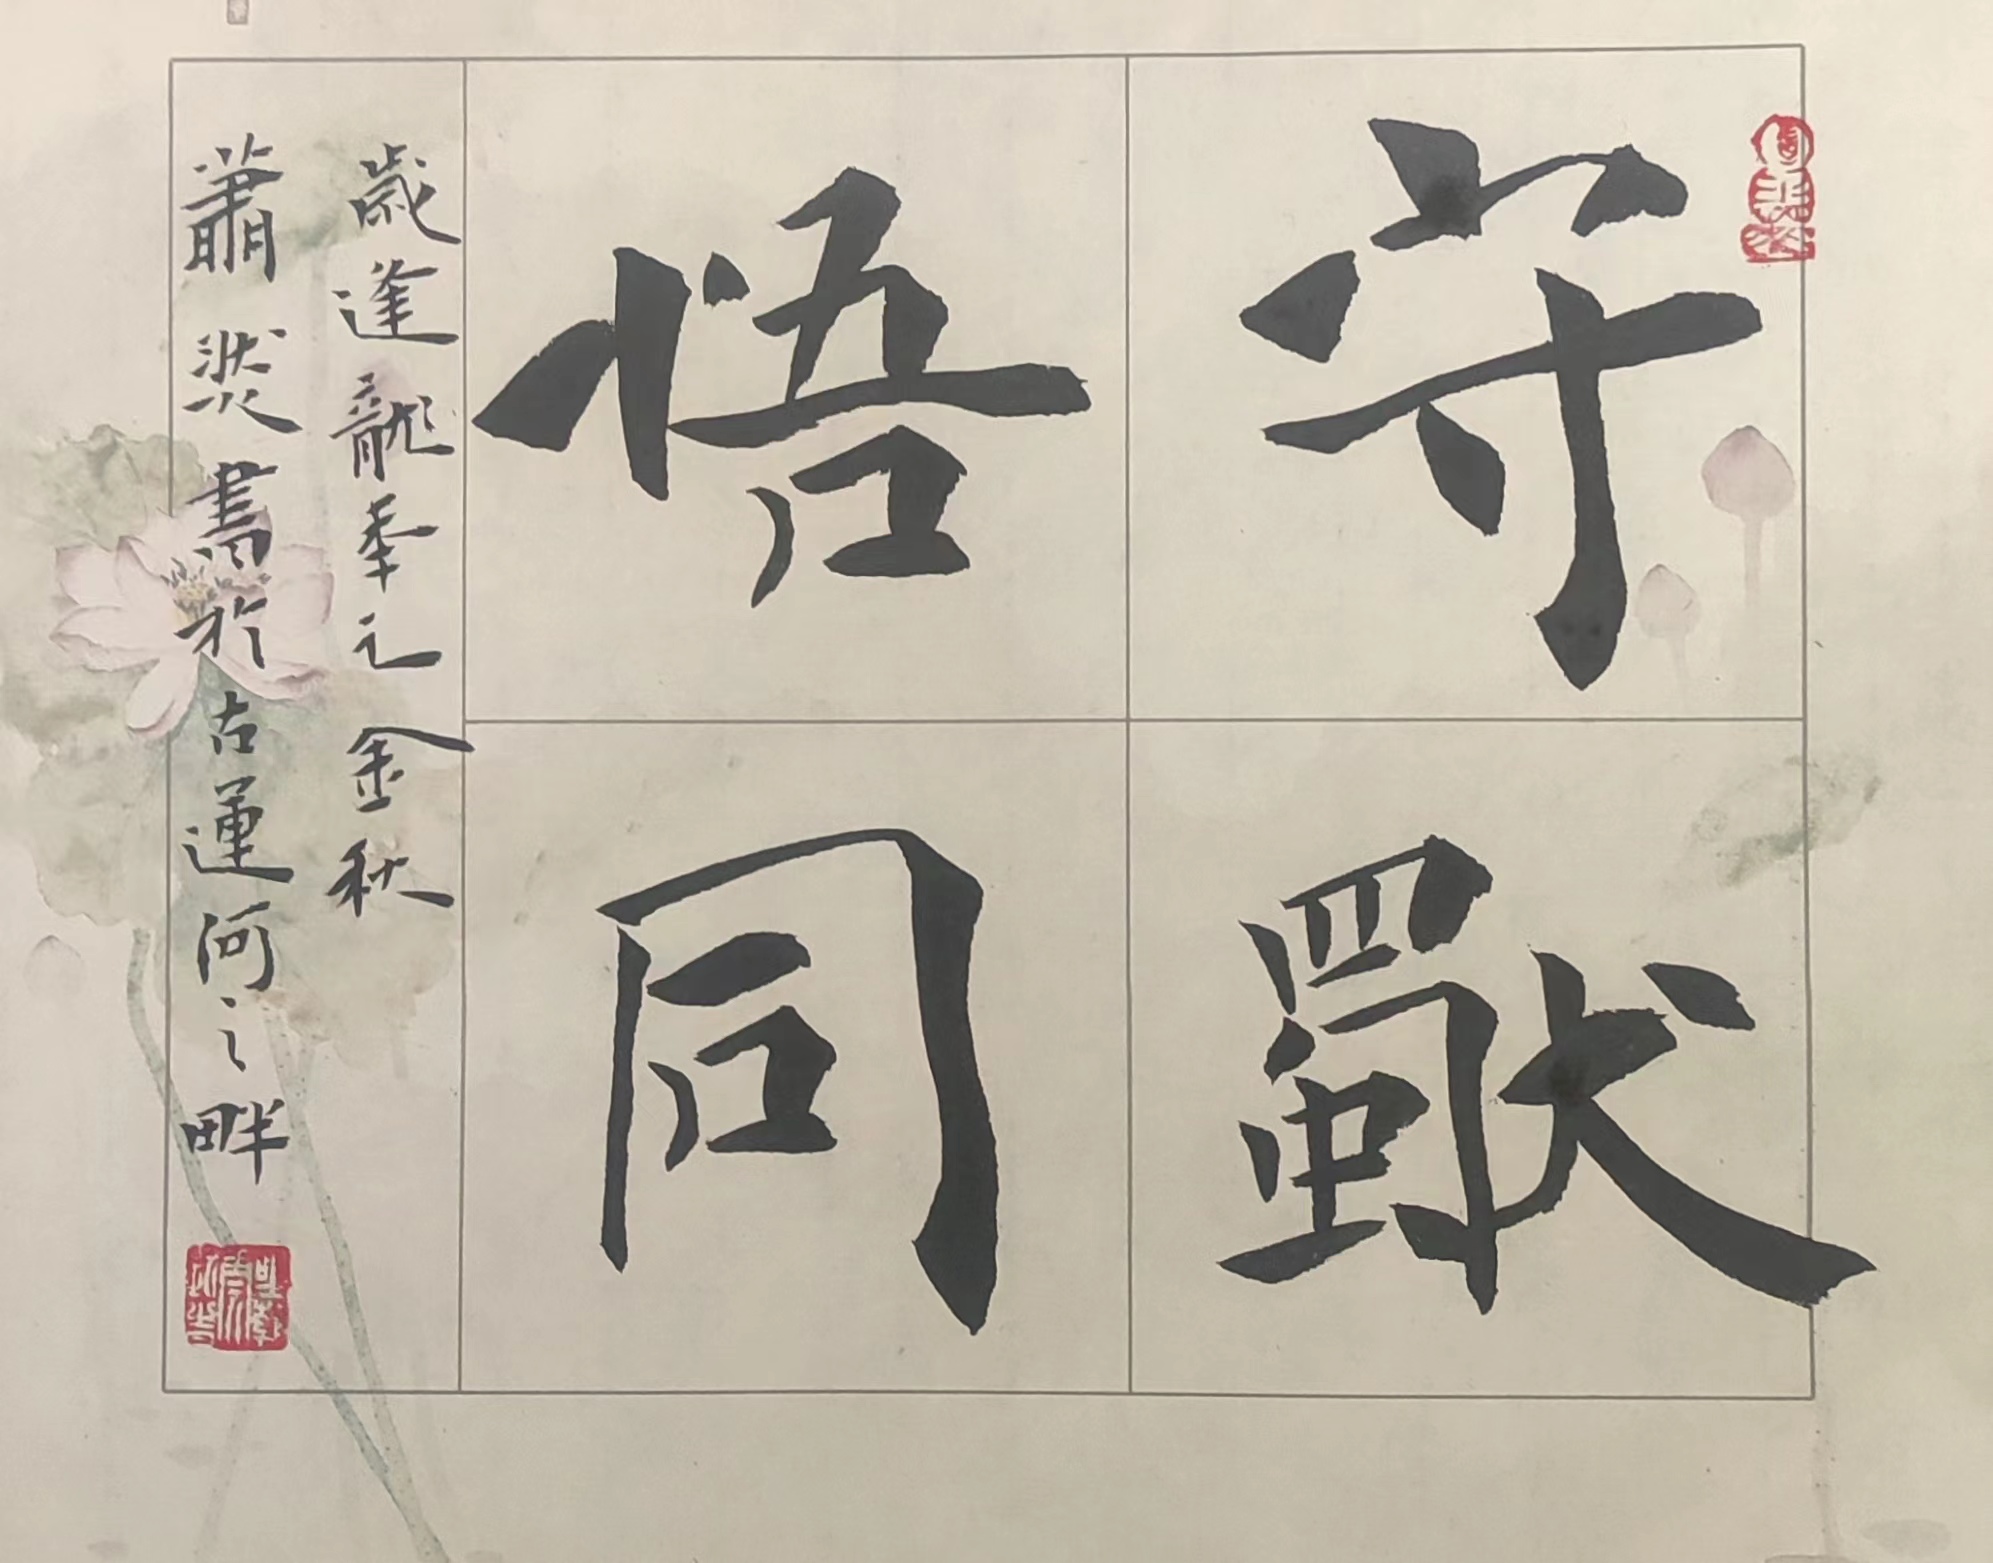 守獨
悟同
歲逢龍年之金秋
蕭書於古運河之畔